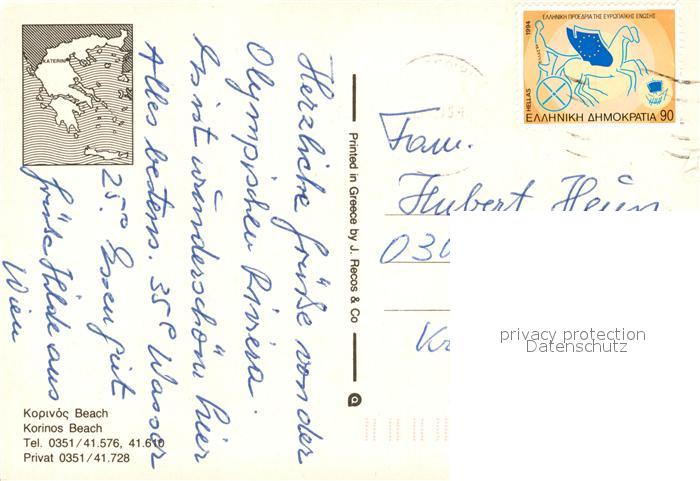 KATERINI
Herzliche Grüße von der
Olympischen Riviera.
Es ist wunderschön hier
Alles bestens. 35° Wasser
25° Essen gut
Grüße Hilde aus
Wien
Κορινός Beach
Korinos Beach
Tel. 0351/41.576, 41.610
Privat 0351/41.728
Printed in Greece by J. Recos & Co
ΕΛΛΗΝΙΚΗ ΠΡΟΕΔΡΙΑ ΤΗΣ ΕΥΡΩΠΑΪΚΗΣ ΕΝΩΣΗΣ
1994
HELLAS
ΕΛΛΗΝΙΚΗ ΔΗΜΟΚΡΑΤΙΑ 90
Fam.
Hubert
030
privacy protection
Datenschutz